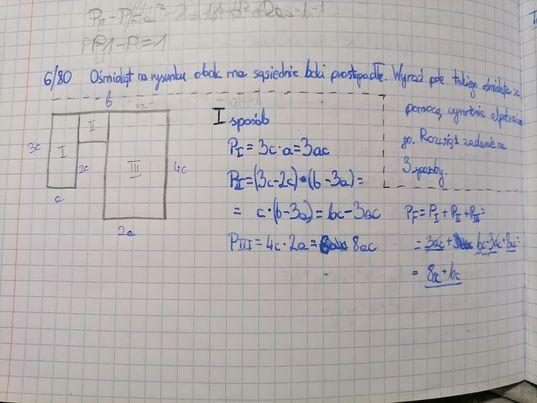 PP1-P=1
6/80 Ośmiokąt na rysunku obok ma sąsiednie boki prostopadłe. Wyraź pole takiego ośmiokąta za
pomocą wyrażenia algebraicznego. Rozwiąż zadanie na
3 sposoby.
b
3c
I
II
2c
III
4c
a
2a
I sposób
P_I = 3c·a = 3ac
P_II = (3c-2c)·(b-3a) =
= c·(b-3a) = bc-3ac
P_III = 4c·2a = 8ac
P_F = P_I + P_I + P_III =
= 3ac + bc-3ac+8ac =
= 8a + bc